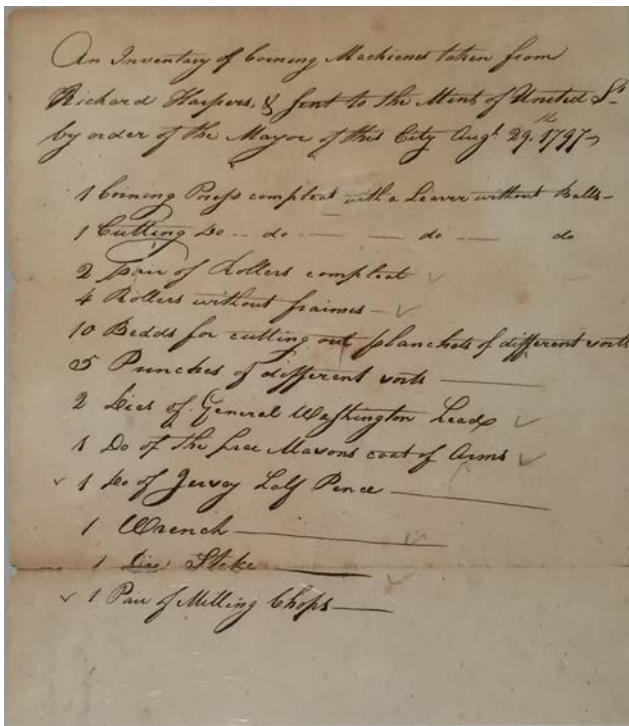 An Inventory of Coining Machienes taken from
Richard Harpers, & sent to the Mint of United Sts
by order of the Mayor of this City Augt. 29.th 1797
1 Coining Press compleat with a Leaver without Balls
1 Cutting Do -- do — — — do — do
2 Pair of Rollers compleat
4 Rollers without fraimes
10 Bedds for cutting out planchets of different sorts
25 Punches of different sorts
2 Dies of General Washington Head
1 Do of the free Masons coat of Arms
1 Do of Jersey Half Pence
1 Wrench
1 Die Stake
1 Pair of Milling Chops